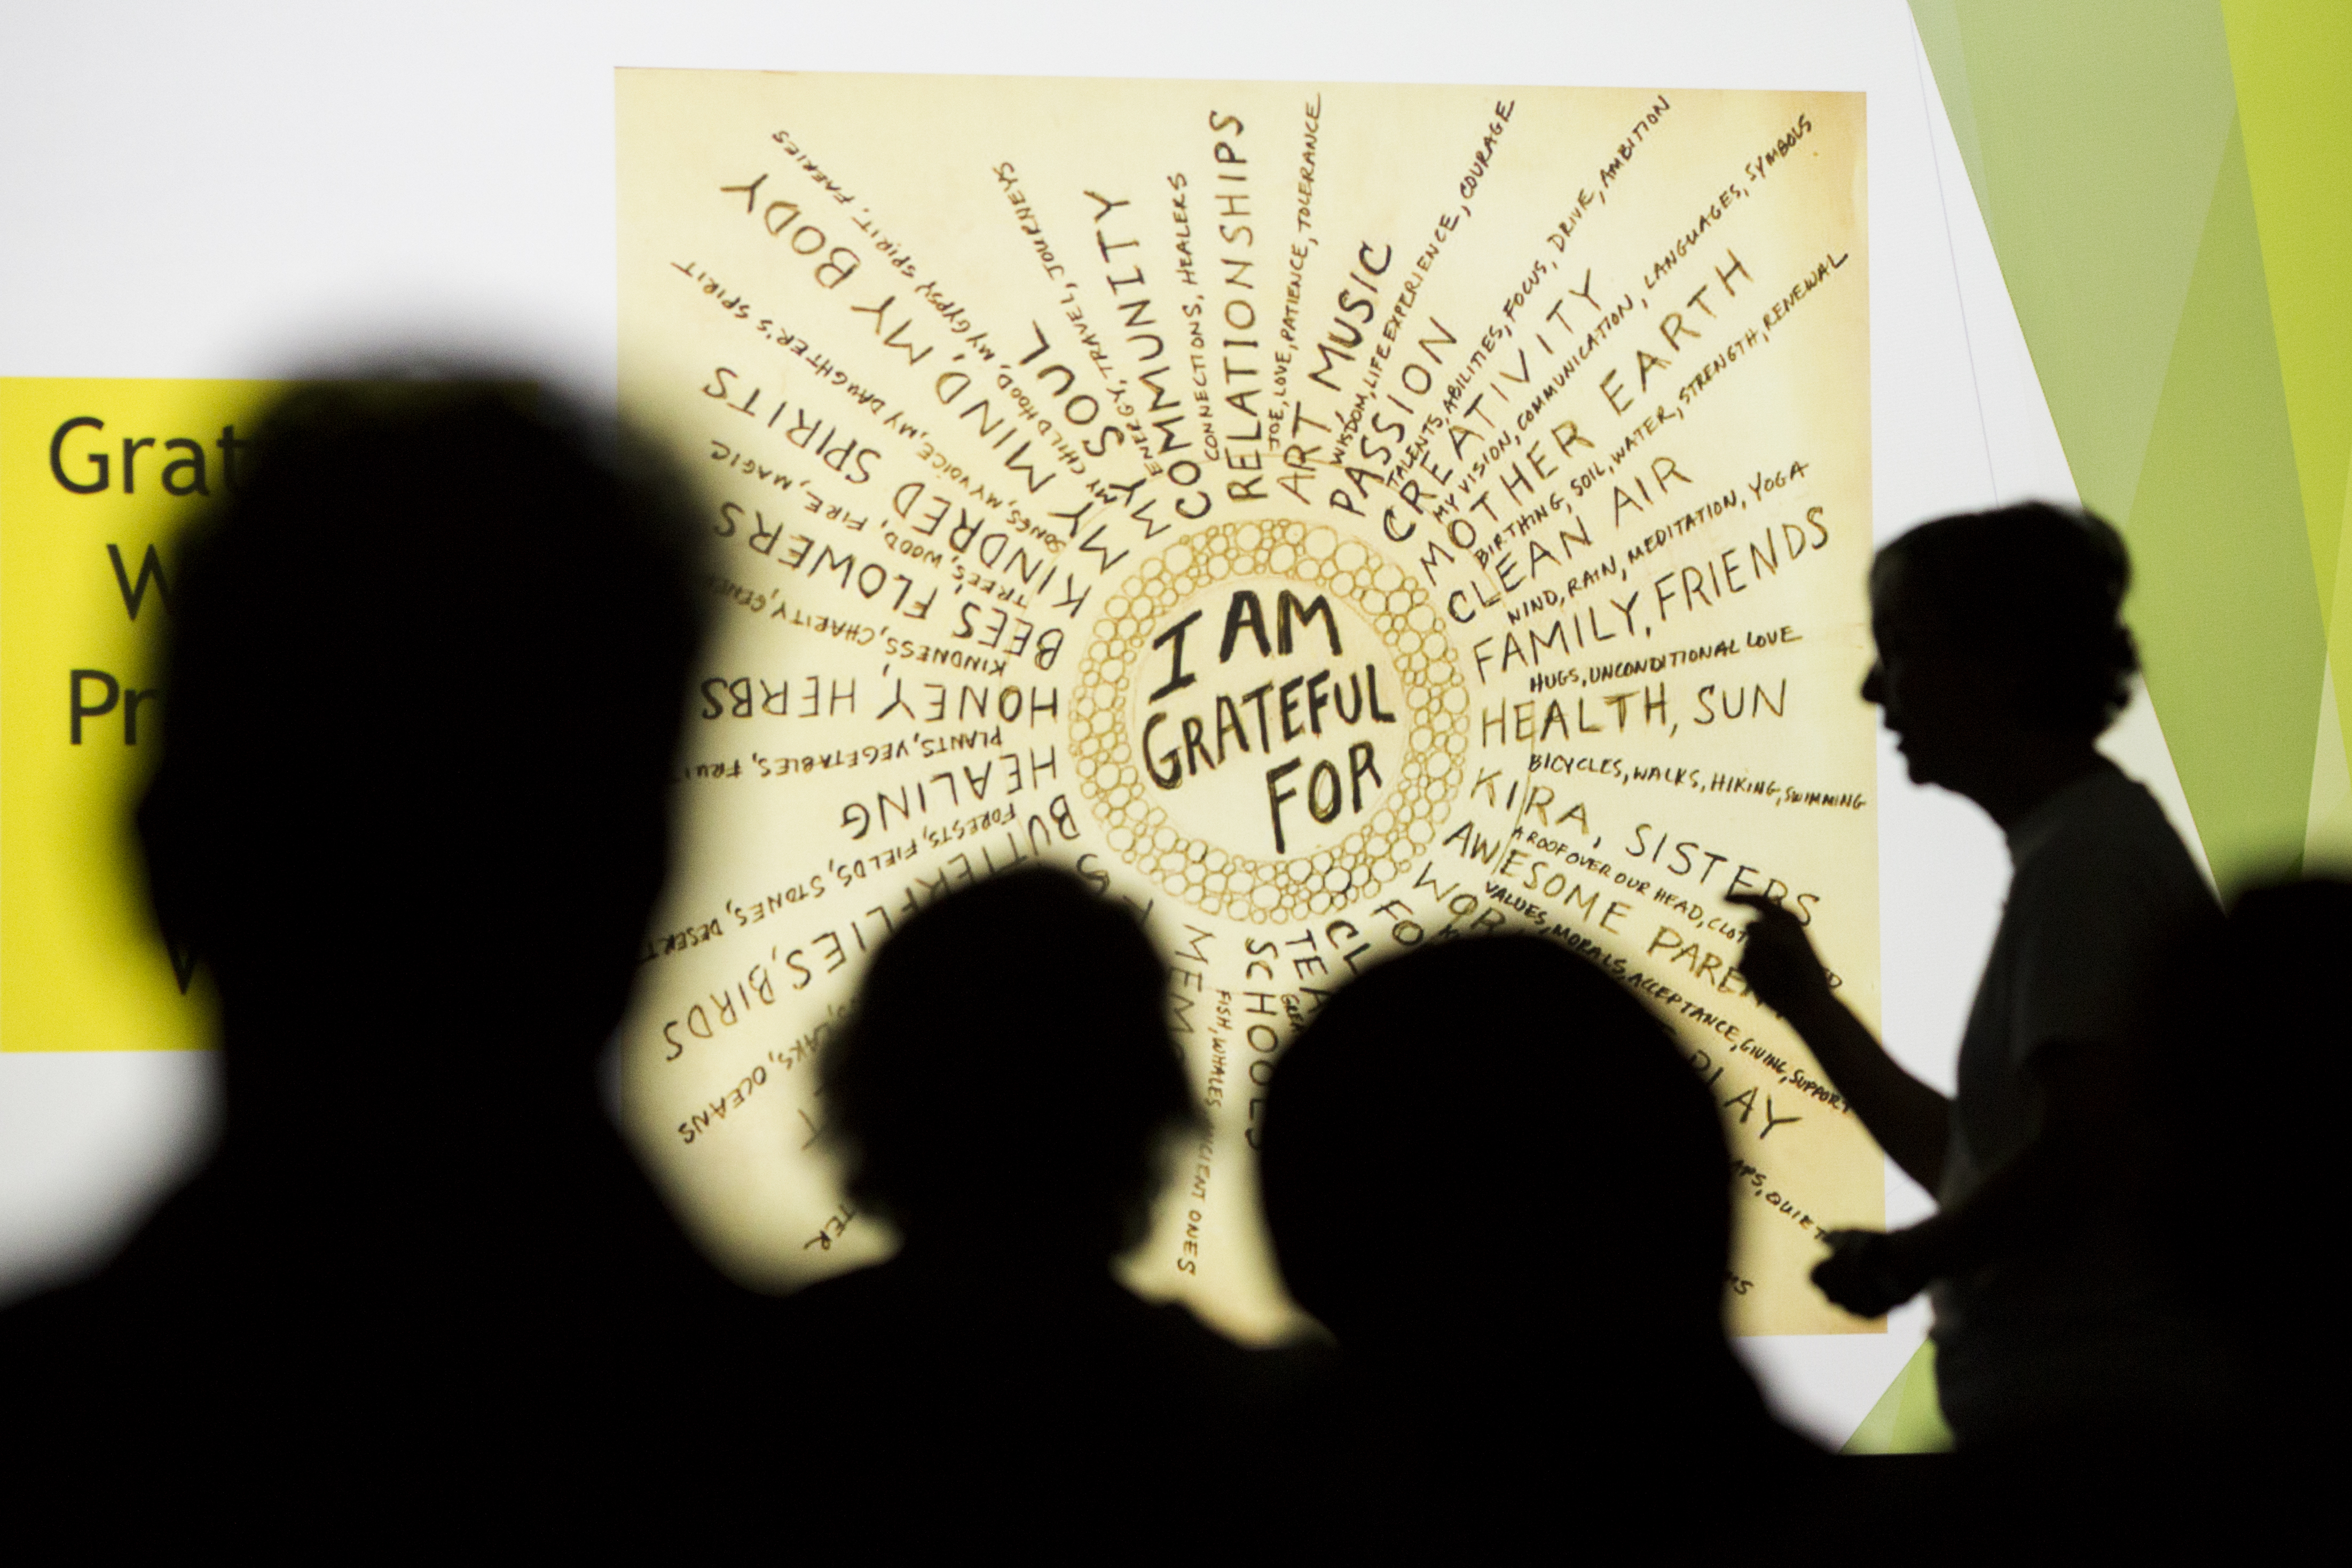 Grat
W
Pr
W
I AM
GRATEFUL
FOR
RELATIONSHIPS
JOE, LOVE, PATIENCE, TOLERANCE
ART, MUSIC
WISDOM, LIFE EXPERIENCE, COURAGE
PASSION
TALENTS, ABILITIES, FOCUS, DRIVE, AMBITION
CREATIVITY
MY VISION, COMMUNICATION, LANGUAGES, SYMBOLS
MOTHER EARTH
BIRTHING, SOIL, WATER, STRENGTH, RENEWAL
CLEAN AIR
WIND, RAIN, MEDITATION, YOGA
FAMILY, FRIENDS
HUGS, UNCONDITIONAL LOVE
HEALTH, SUN
BICYCLES, WALKS, HIKING, SWIMMING
KIRA, SISTERS
A ROOF OVER OUR HEAD, CLOT
AWESOME PAREN
VALUES, MORALS, ACCEPTANCE, GIVING, SUPPORT
WOR
PLAY
FO
APS, QUIET
CL
MS
TEA
GREA
SCHOOLS
FISH, WHALES ANCIENT ONES
MEMO
TER
LAKS, OCEANS
BUTTERFLIES, BIRDS
FORESTS, FIELDS, STONES, DESERT
HEALING
PLANTS, VEGETABLES, FRUI
HONEY, HERBS
KINDNESS, CHARITY, GEN
BEES, FLOWERS
TREES, WOOD, FIRE, MAGIC
KINDRED SPIRITS
SONGS, MY VOICE, MY DAUGHTER'S SPIRIT
MY MIND, MY BODY
MY CHILDHOOD, MY GYPSY SPIRIT, FAERIES
MY SOUL
ENERGY, TRAVEL, JOURNEYS
COMMUNITY
CONNECTIONS, HEALERS